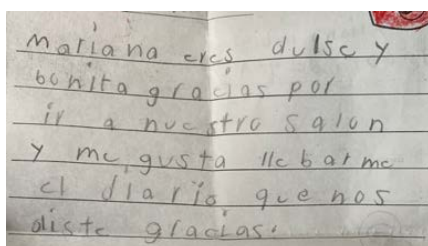 Mariana eres dulse y
bonita gracias por
ir a nuestro salon
y me gusta llebarme
el diario que nos
diste gracias.